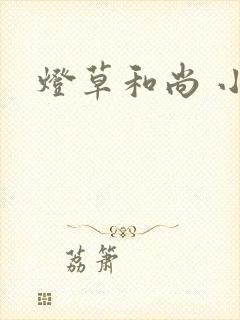 燈草和尚 小
荔簫